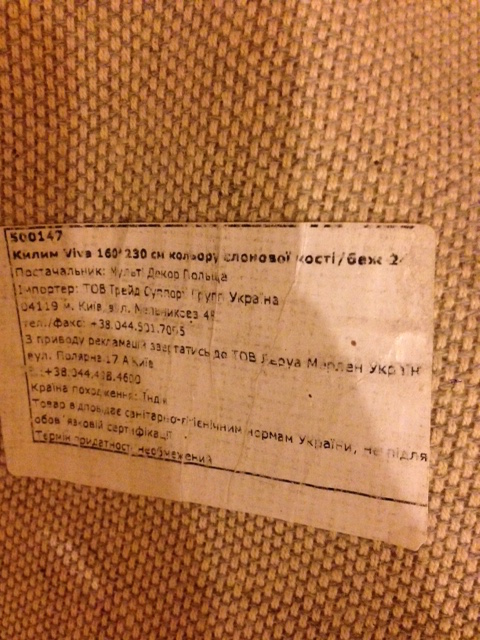 500147
Килим Viva 160*230 см кольору слонової кості/беж 2
Постачальник: Мульті Декор Польща
Імпортер: ТОВ Трейд Суппорт Групп Україна
04119 м. Київ, вул. Мельникова
тел./факс: +38.044.501.7065
З приводу рекламацій звертатись до ТОВ Леруа Мерлен Україн
вул. Полярна 17 А Київ
Країна походження: Індія
Товар відповідає санітарно-гігієнічним нормам України, не підля
обов'язковій сертифікації
Термін придатності необмежений